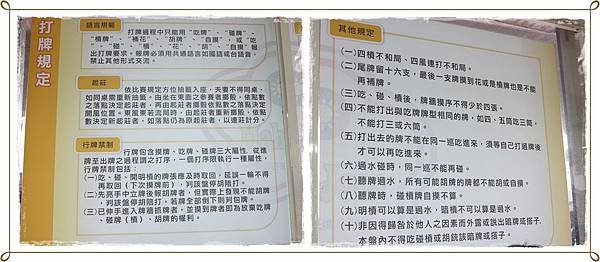 打牌規定
語言規範
打牌過程中只能用"吃牌"、"碰牌"、
"槓牌"、"補花"、"胡牌"、"自摸"或"吃
"、"碰"、"槓"、"花"、"胡"、"自摸"報
出打牌要求。報牌必須用共通語言如國語或台語音，
禁止其他形式交流。
起莊
依比賽規定方位抽籤入座，夫妻不得同桌，
如同桌需重新抽籤，由坐在東面之參賽者擲骰，依點數
之落點決定起莊者，再由起莊者擲骰依點數之落點決定
開風位置。東風東若流局時，由起莊者重新擲骰，依點
數決定新起莊者，如落點仍為原起莊者，以連莊計分。
行牌禁制
行牌包含摸牌、吃牌、碰牌三大屬性，從進
牌至出牌之過程謂之打序，一個打序限執行一種屬性，
行牌禁制包括：
(一)吃、碰、開明槓的牌張應及時取回，延誤一輪不得
再取回（下次摸牌前），判該盤停胡陪打。
(二)先亮手中立牌後報胡牌者，但實際上發現不能胡牌
，判該盤停胡陪打，若牌全部倒下則判包牌。
(三)已伸手進入牌牆抓牌者，並摸到牌者即為放棄吃牌
、碰牌（槓）、胡牌的權利。
其他規定
(一)四槓不和局、四風連打不和局。
(二)尾牌留十六支，最後一支牌摸到花或是槓牌也是不能
再補牌。
(三)吃、碰、槓後，牌牆摸序不得少於四張。
(四)不能打出與吃牌牌型相同的牌，如四、五筒吃三筒，
不能打三或六筒。
(五)打出去的牌不能在同一巡吃進來，須等自己打過牌後
才可以再吃進來。
(六)過水碰時，同一巡不能再碰。
(七)聽牌過水，所有可能胡牌的牌都不能胡或自摸。
(八)聽牌時，碰槓牌自摸不算。
(九)明槓可以算是過水，暗槓不可以算是過水。
(十)非因得歸咎於他人之因素而外露或説出暗牌或搭子，
本盤內不得吃碰槓或胡該暗牌或搭子。